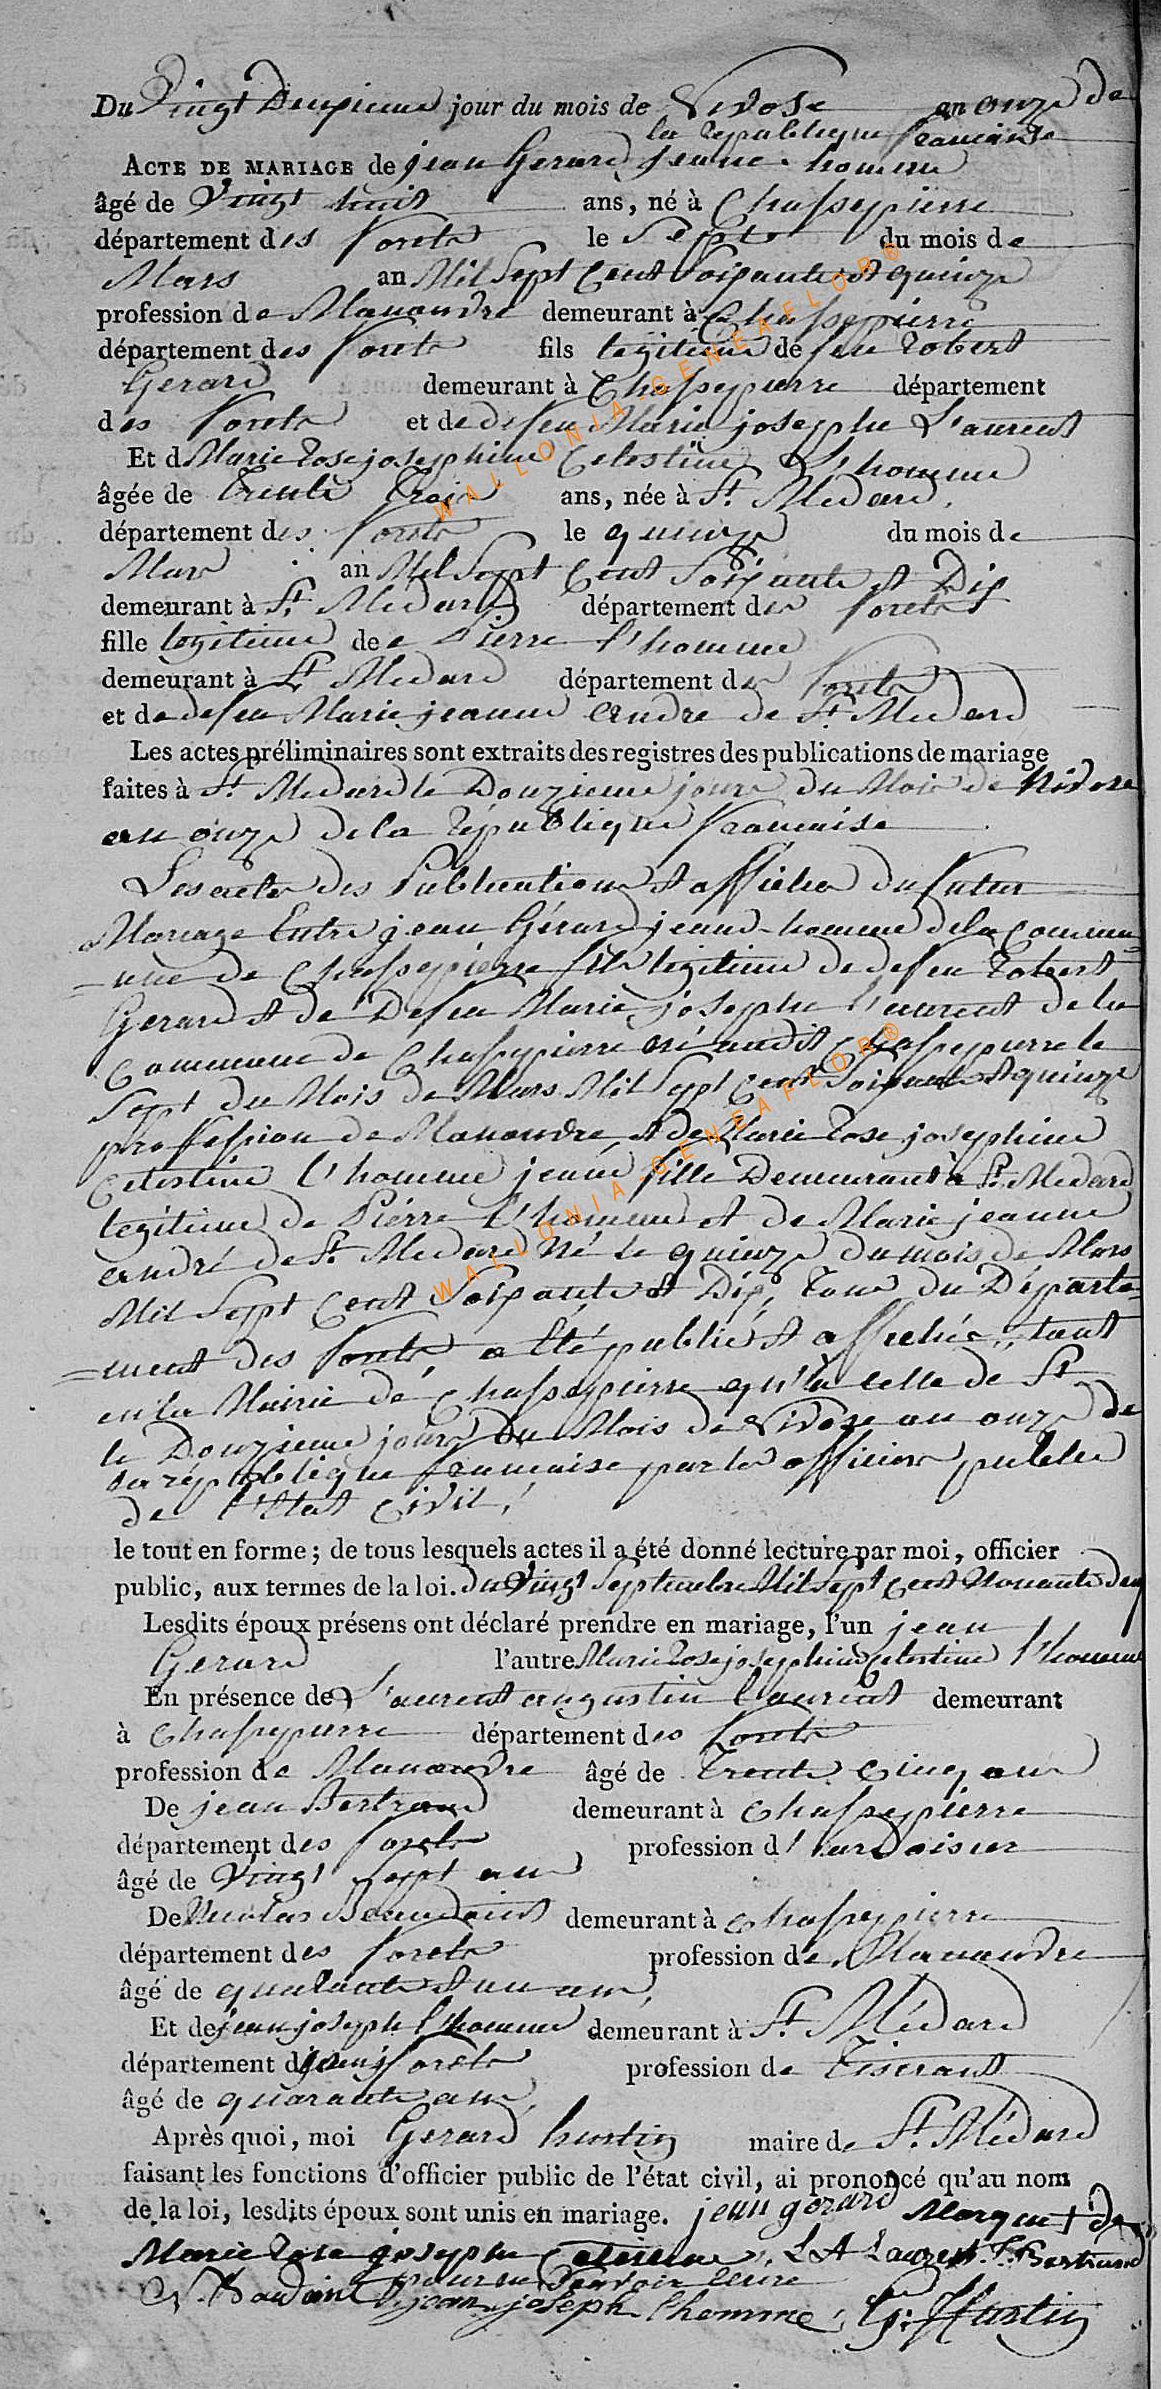 Du Vingt Deuxieme jour du mois de Nivose an onze de
la republique francaise
ACTE DE MARIAGE de jean Gerard jeune homme
âgé de Vingt huit ans, né à Chassepierre
département des forets le Sept du mois de
Mars an Mil Sept Cent Soixante et quinze
profession de Manoeuvre demeurant à Chassepierre
département des forets fils legitime de feu Robert
Gerard demeurant à Chassepierre département
des forets et de defeu Marie josephe L'aurent
Et d Marie Rose josephine Celestine L'homme
âgée de Trente Trois ans, née à St. Medard
département des forets le quinze du mois de
Mars an Mil Sept Cent Soixante et Dix
demeurant à St. Medard département des forets
fille legitime de Pierre l'homme
demeurant à St Medard département des forets
et de defeu Marie jeanne Andre de St. Medard
Les actes préliminaires sont extraits des registres des publications de mariage
faites à St. Medard le Douzieme jour du Mois de Nivose
an onze de la république francaise
Les actes des Publications et affiches du futur
Mariage Entre jean Gérard jeune homme de la Commu=
=une de Chassepierre fils legitime de defeu Robert
Gerard et de Defeu Marie josephe l'aurent de la
Commune de Chassepierre né audit Chassepierre le
Sept du Mois de Mars Mil Sept Cent Soixante et quinze
profession de Manoeuvre, et de Marie Rose josephine
Celestine l'homme jeune fille Demeurant à St. Medard
legitime de Pierre l'homme et de Marie jeanne
andré de St. Medard Né le quinze du mois de Mars
Mil Sept Cent Soixante et Dix, Tous du Départe=
=ment des forets, a été publié et affichée, tant
en la Mairie de Chassepierre qu'à celle de St
le Douzieme jour Du Mois de Nivose an onze de
la république francaise par les officiers publics
de l'Etat Civil,
le tout en forme; de tous lesquels actes il a été donné lecture par moi, officier
public, aux termes de la loi. du Vingt Septembre Mil Sept Cent Nonante deux
Lesdits époux présens ont déclaré prendre en mariage, l'un jean
Gerard l'autre Marie Rose josephine Celestine l'homme
En présence de L'aurent augustin l'aurent demeurant
à Chassepierre département des forets
profession de Manoeuvre âgé de Trente Cinq ans
De jean Bertrand demeurant à Chassepierre
département des forets profession d'ardoisier
âgé de Vingt Sept ans
De Nicolas Beaudoint demeurant à Chassepierre
département des forets profession de Manoeuvre
âgé de quarante et un ans,
Et de jean joseph l'homme demeurant à St Médard
département des forets profession de Tiserant
âgé de quarante ans,
Après quoi, moi Gerard hustin maire de St. Médard
faisant les fonctions d'officier public de l'état civil, ai prononcé qu'au nom
de la loi, lesdits époux sont unis en mariage. jean gerard Marque + de
Marie Rose josephe Celestine, L A Laurent. J. Bertrand
pour ne savoir ecrire
N. Baudoint jean joseph lhomme, G: Hustin
WALLONIA-GENEAFLOR®
WALLONIA-GENEAFLOR®